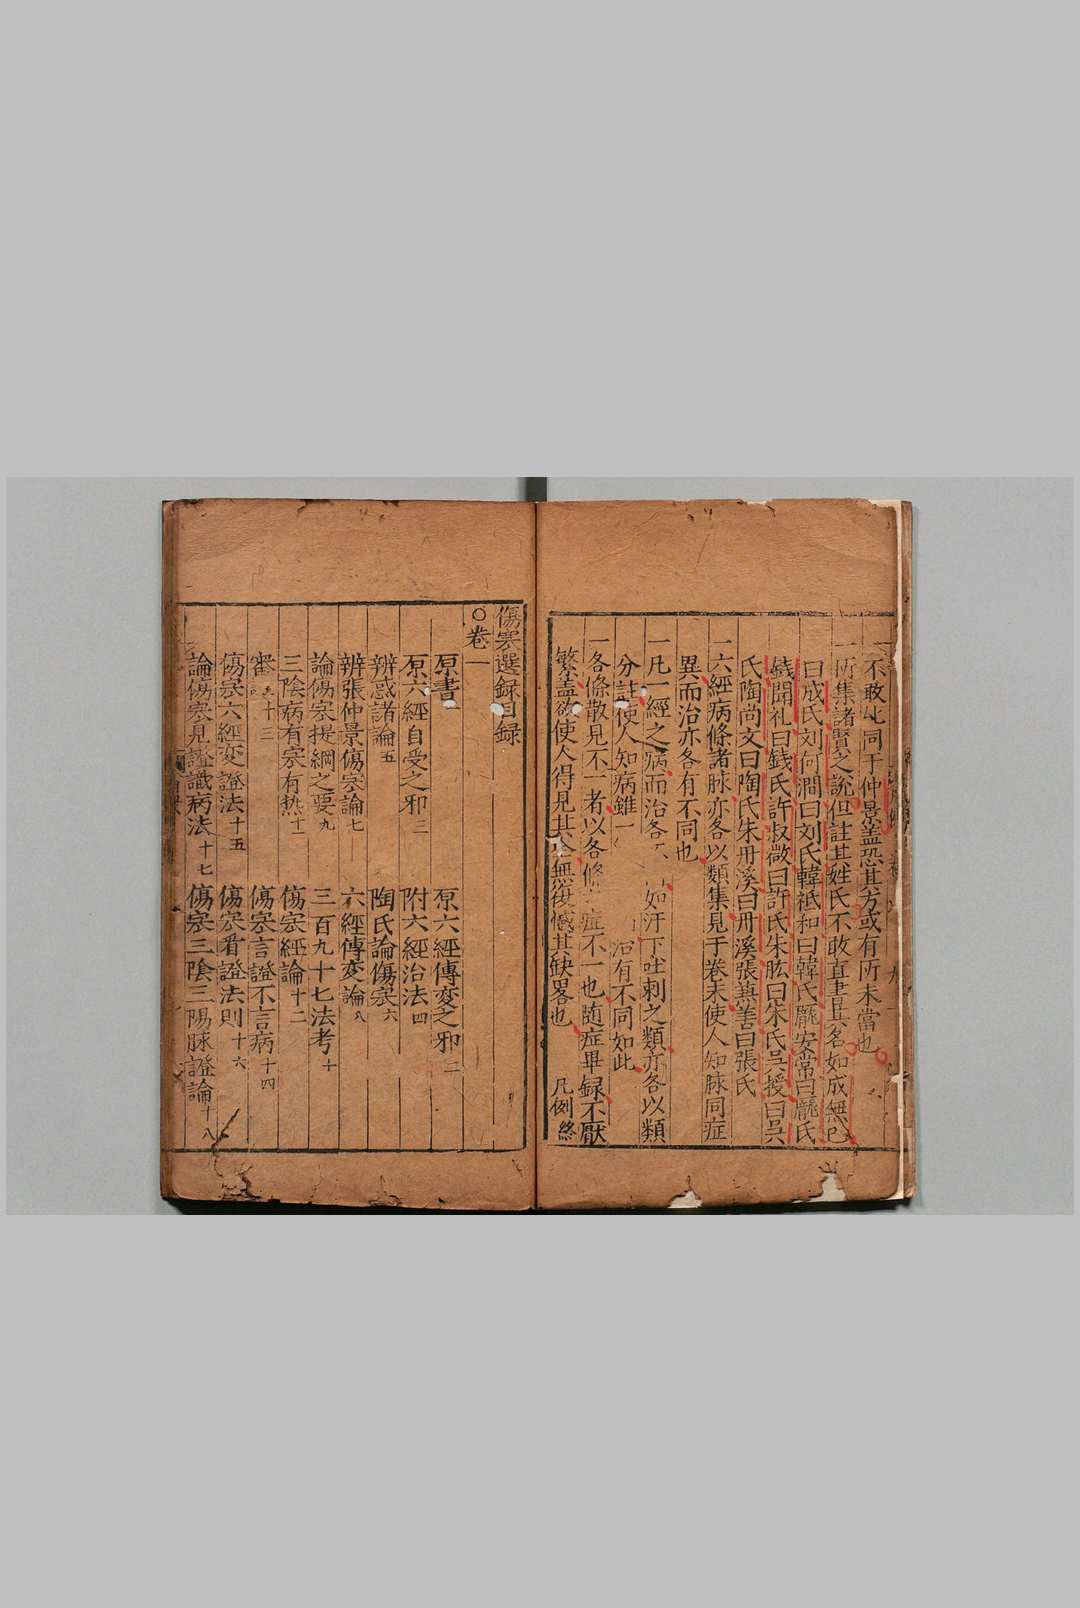 不敢比同于仲景盖恐其方或有所未當也
一所集諸賢之說但註其姓氏不敢直書其名如成無已
曰成氏刘何澗曰刘氏韓祗和曰韓氏龐安常曰龐氏
錢聞礼曰錢氏許叔微曰許氏朱肱曰朱氏吳授曰吳
氏陶尚文曰陶氏朱丹溪曰丹溪張兼善曰張氏
一六經病條諸脉亦各以類集見于卷末使人知脉同症
異而治亦各有不同也
一凡一經之病而治各 如汗下吐刺之類亦各以類
分註使人知病雖一 治有不同如此
一各條散見不一者以各條 症不一也随症畢録不厭
繁盖欲使人得見其全無復憾其缺畧也 凡例終
傷寒選録目録
○卷一
原書一 原六經傳变之邪二
原六經自受之邪三 附六經治法四
辨惑諸論五 陶氏論傷寒六
辨張仲景傷寒論七 六經傳变論八
論傷寒提綱之要九 三百九十七法考十
三陰病有寒有热十一 傷寒經論十二
審 十三 傷寒言證不言病十四
傷寒六經变證法十五 傷寒看證法則十六
論傷寒見證識病法十七 傷寒三陰三陽脉證論十八